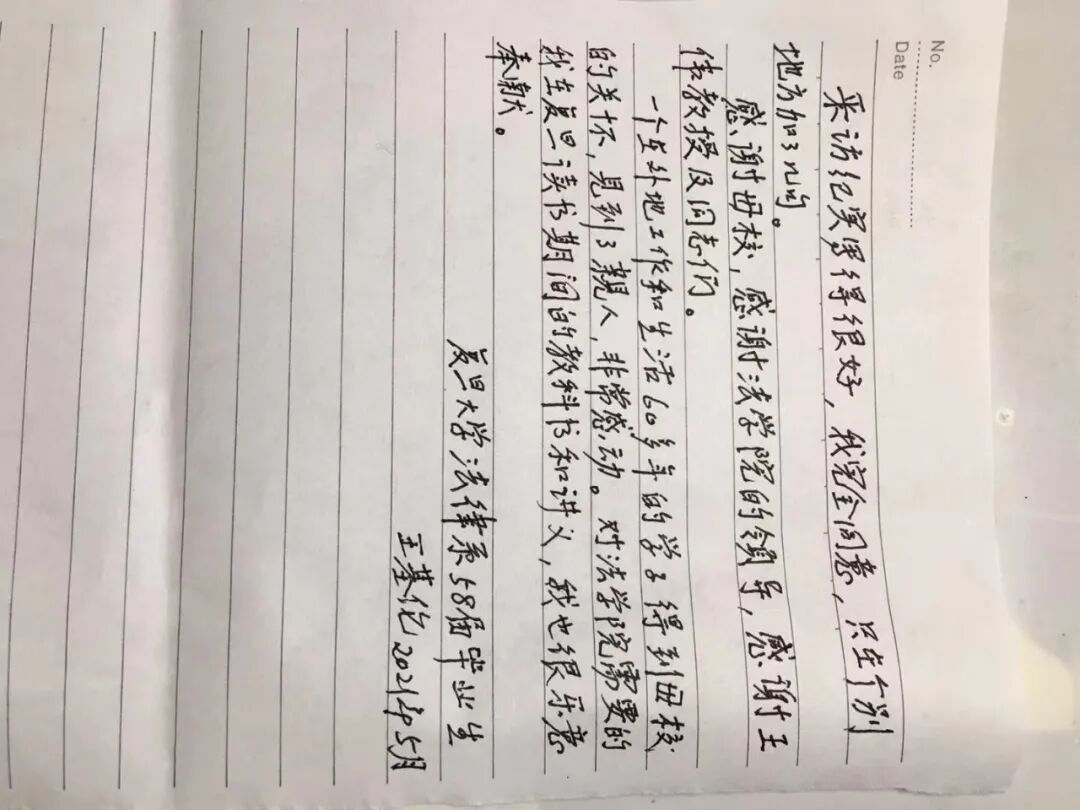 No.
Date
采访纪实写得很好，我完全同意，只在个别
地方加了几句。
感谢母校，感谢法学院的领导，感谢王
伟教授及同志们。
一个在外地工作和生活60多年的学子得到母校
的关怀，见到了亲人，非常感动。对法学院需要的
我在复旦读书期间的教科书和讲义，我也很乐意
奉献。
复旦大学法律系58届毕业生
王基伦 2021年5月